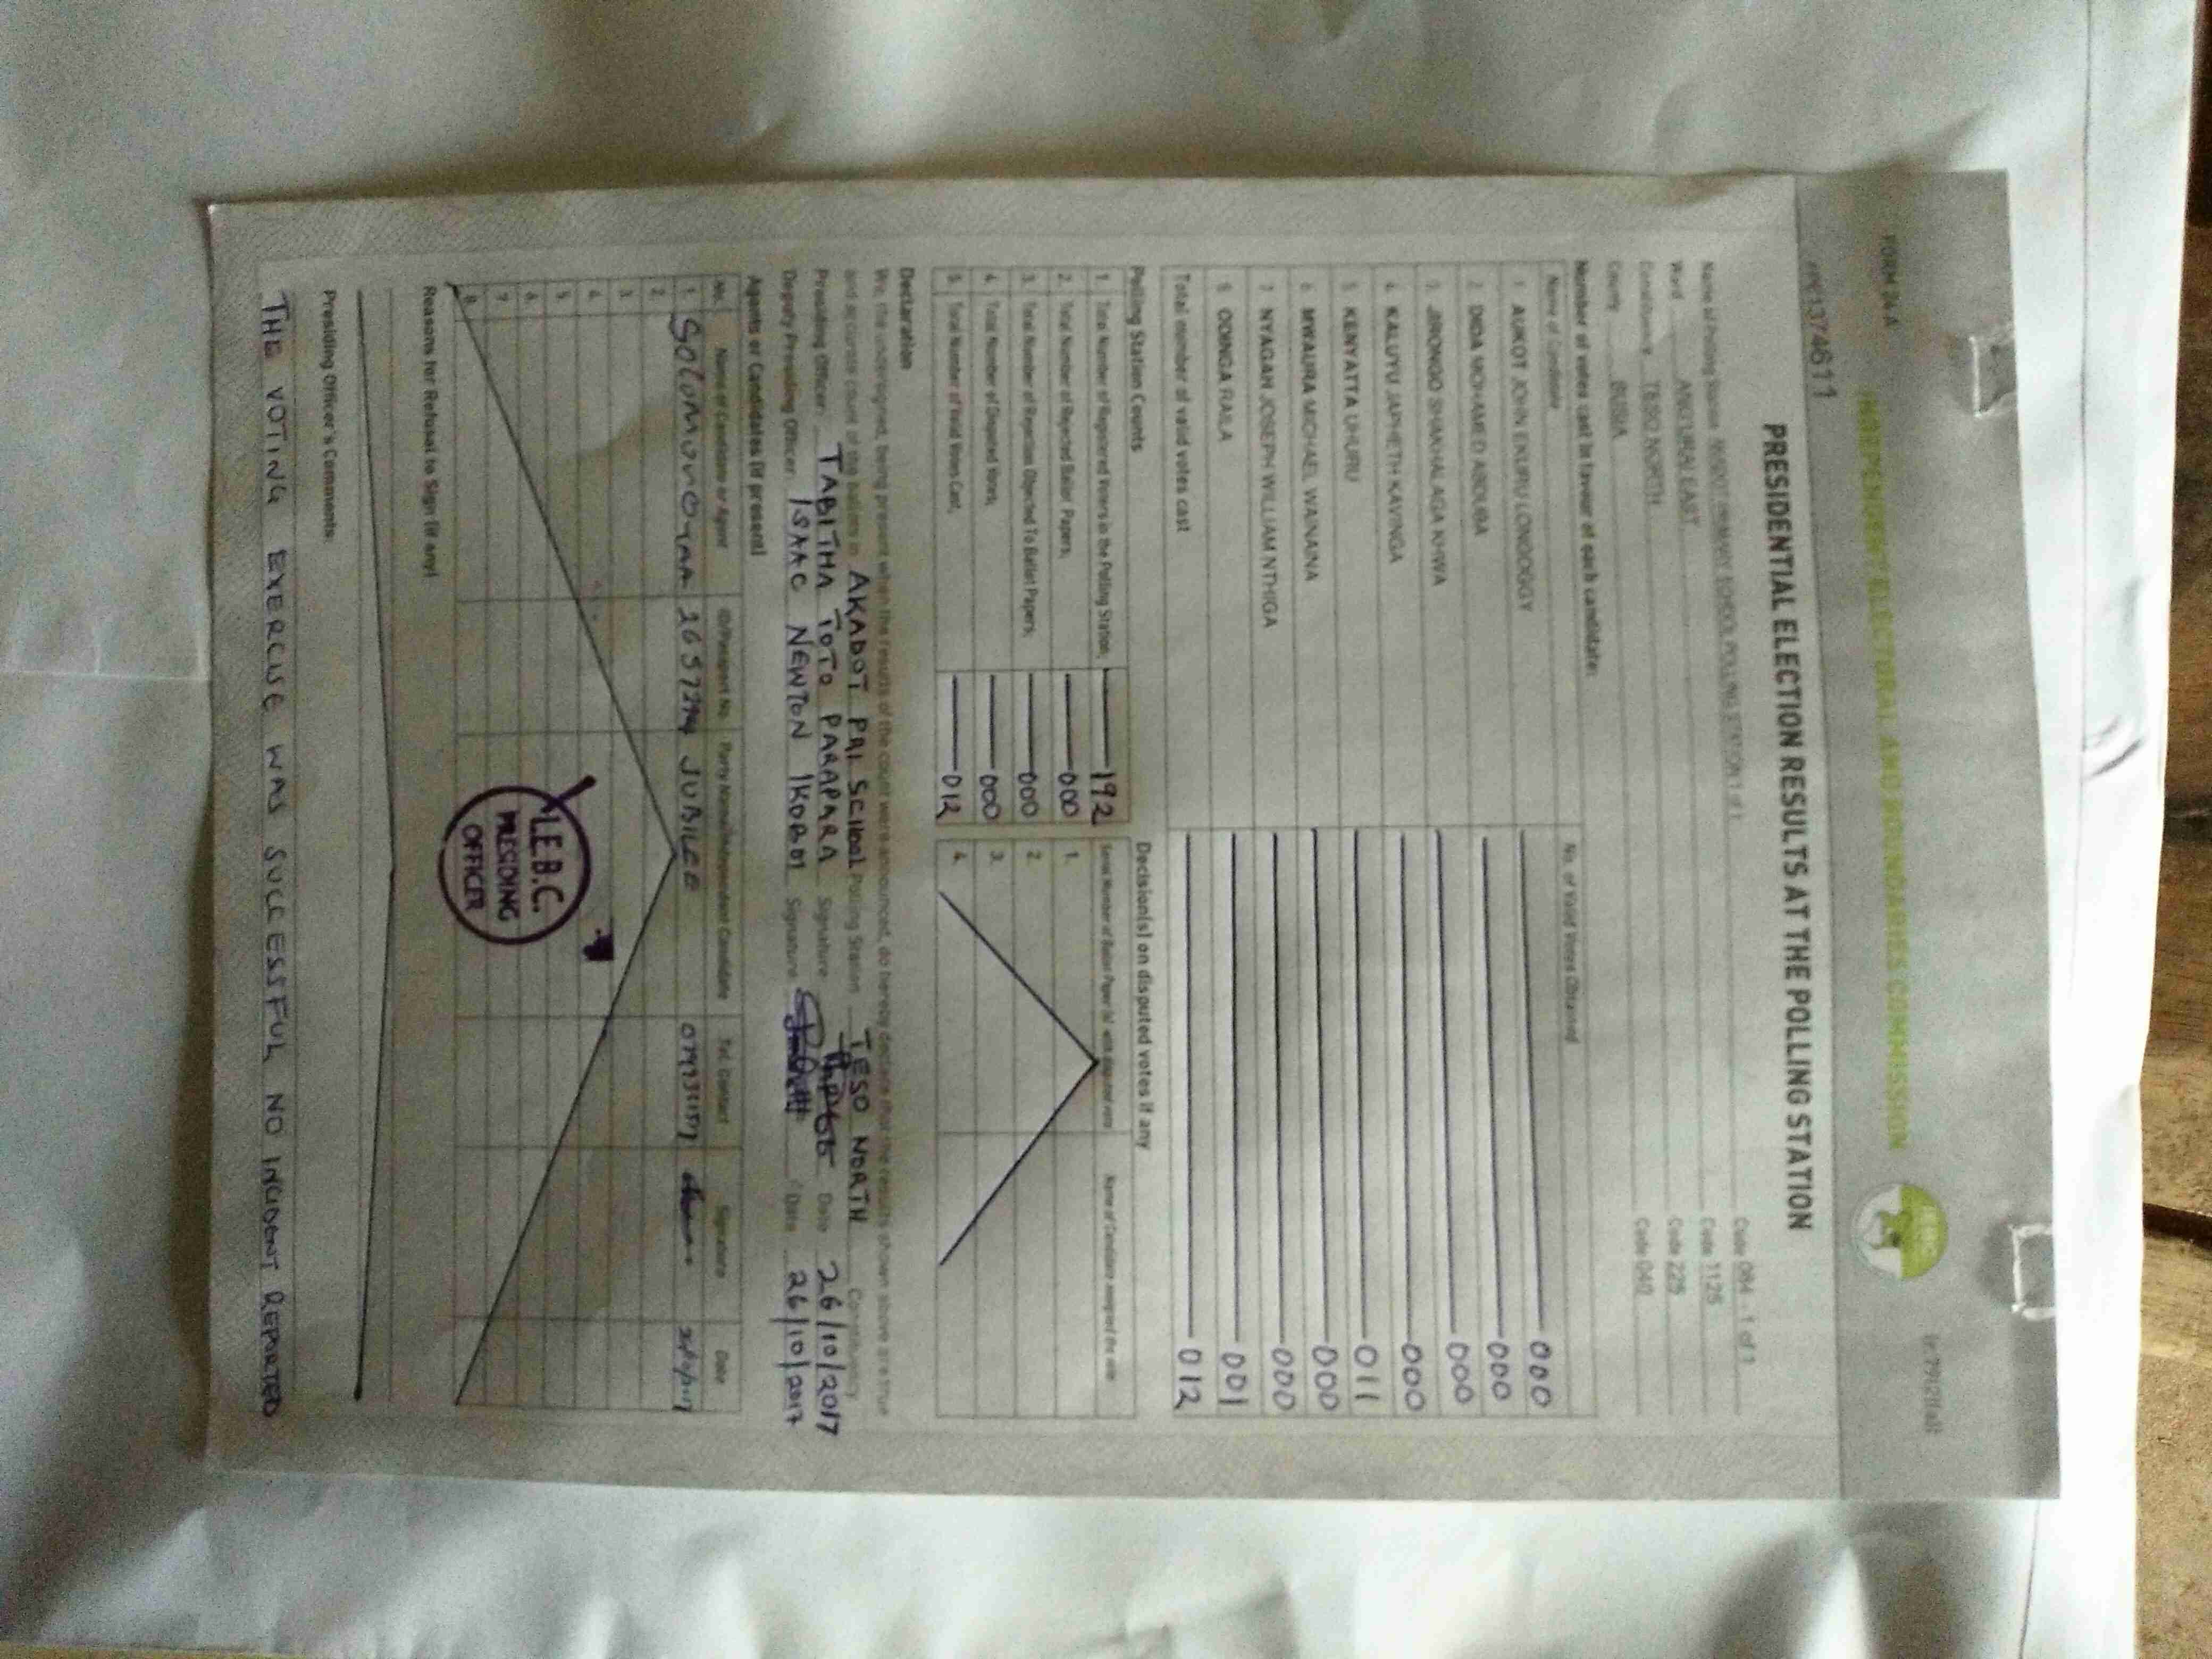 FORM 34A
INDEPENDENT ELECTORAL AND BOUNDARIES COMMISSION
IEBC
PRESIDENTIAL ELECTION RESULTS AT THE POLLING STATION
Name of Polling Station PRIMARY SCHOOL POLLING STATION 1 of 1 Code 084 - 1 of 1
Ward ANG'URAI EAST Code 1125
Constituency TESO NORTH Code 225
County BUSIA Code 040
Number of votes cast in favour of each candidate:
Name of Candidate No. of Valid Votes Obtained
1 AUKOT JOHN EKURU LONGOGGY 000
2 DIDA MOHAMED ABDUBA 000
3 JIRONGO SHAKHALAGA KHWA 000
4 KALUYU JAPHETH KAVINGA 000
5 KENYATTA UHURU 011
6 MWAURA MICHAEL WAINAINA 000
7 NYAGAH JOSEPH WILLIAM NTHIGA 000
8 ODINGA RAILA 001
Total number of valid votes cast 012
Polling Station Counts
1. Total Number of Registered Voters in the Polling Station; 192
2. Total Number of Rejected Ballot Papers; 000
3. Total Number of Rejection Objected To Ballot Papers; 000
4. Total Number of Disputed Votes; 000
5. Total Number of Valid Votes Cast; 012
Decision(s) on disputed votes if any
Serial Number of Ballot Paper(s) with disputed vote Name of Candidate assigned the vote
1.
2.
3.
4.
Declaration
We, the undersigned, being present when the results of the count were announced, do hereby declare that the results shown above are the true
and accurate count of the ballots in AKADOT PRI SCHOOL Polling Station TESO NORTH Constituency
Presiding Officer: TABITHA TOTO PARAPARA Signature Date 26/10/2017
Deputy Presiding Officer: ISAAC NEWTON Signature Date 26/10/2017
Agents or Candidates (if present)
No. Name of Candidate or Agent ID/Passport No. Party Name/Independent Candidate Tel. Contact Signature Date
1. SOLOMON JUBILEE
2.
3.
4.
5.
6.
7.
8.
I.E.B.C.
PRESIDING
OFFICER
Reasons for Refusal to Sign (if any)
Presiding Officer's Comments:
THE VOTING EXERCISE WAS SUCCESSFUL NO INCIDENT REPORTED